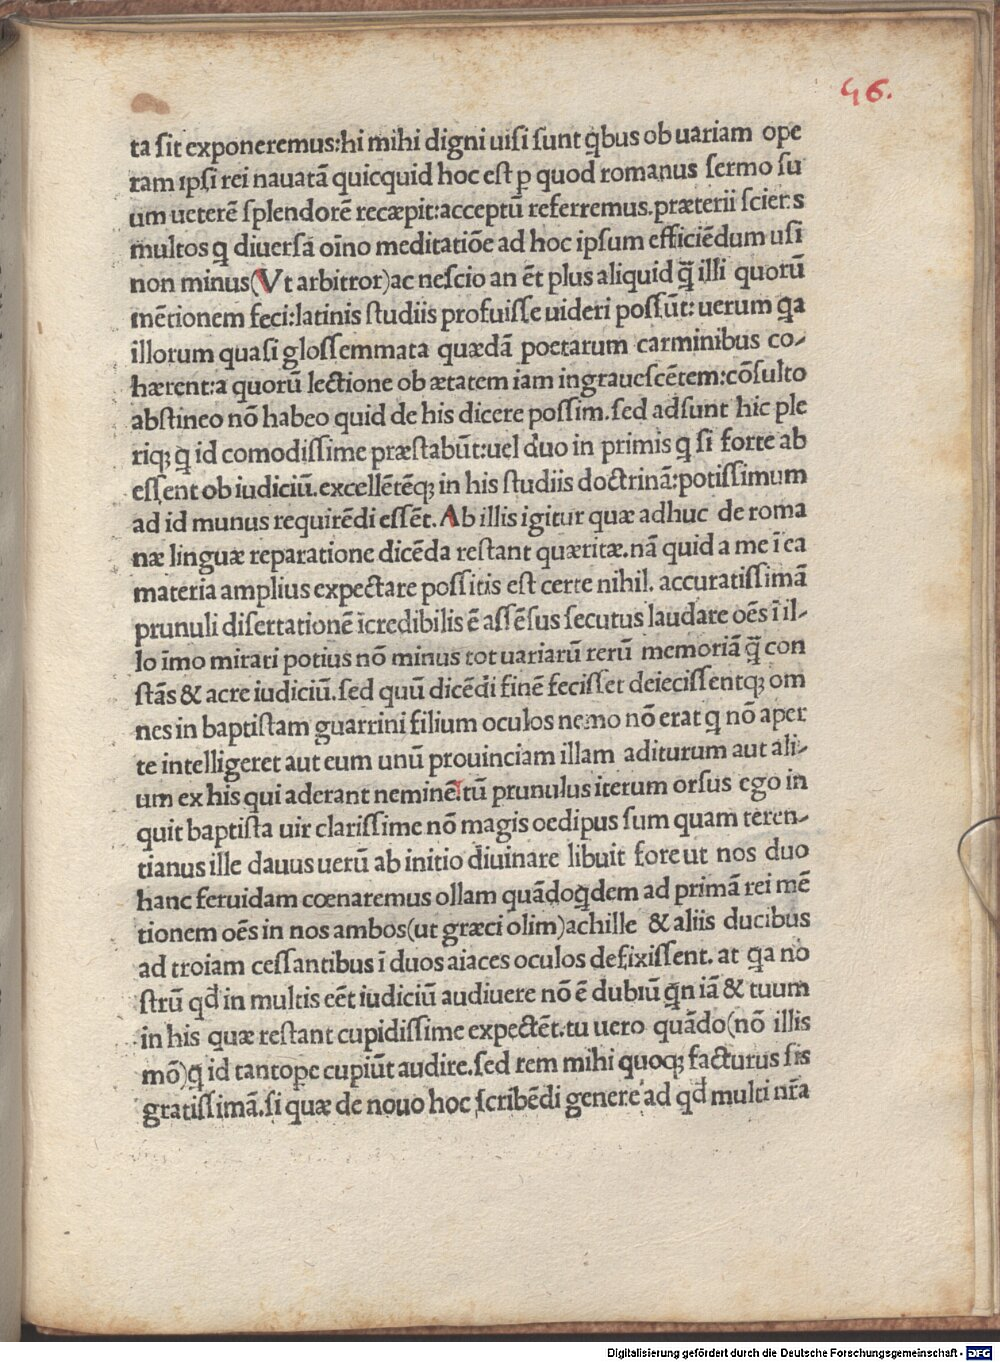 46.
ta sit exponeremus:hi mihi digni uisi sunt q̃bus ob uariam ope
ram ipsi rei nauatā quicquid hoc est p quod romanus sermo su
um ueterē splendorē recæpit:acceptū referremus.præterii sciens
multos q diuersa oīno meditatiōe ad hoc ipsum efficiēdum usi
non minus(Vt arbitror)ac nescio an ēt plus aliquid q̃ illi quorū
mētionem feci:latinis studiis profuisse uideri possūt: uerum qa
illorum quasi glossemmata quædā poetarum carminibus co-
hærent:a quorū lectione ob ætatem iam ingrauescētem:cōsulto
abstineo nō habeo quid de his dicere possim.sed adsunt hic ple
riq; q id comodissime præstabūt:uel duo in primis q si forte ab
essent ob iudiciū.excellētēq; in his studiis doctrinā:potissimum
ad id munus requirēdi essēt.Ab illis igitur quæ adhuc de roma
næ linguæ reparatione dicēda restant quæritæ.nā quid a me ī ea
materia amplius expectare possitis est certe nihil. accuratissimā
prunuli disertationē īcredibilis ē assēsus secutus laudare oēs ī il-
lo īmo mirari potius nō minus tot uariarū rerū memoriā q̃ con
stās & acre iudiciū.sed quū dicēdi finē fecisset deiecissentq; om
nes in baptistam guarrini filium oculos nemo nō erat q nō aper
te intelligeret aut eum unū prouinciam illam aditurum aut ali-
um ex his qui aderant neminē.tū prunulus iterum orsus ego in
quit baptista uir clarissime nō magis oedipus sum quam teren-
tianus ille dauus uerū ab initio diuinare libuit fore ut nos duo
hanc feruidam cœnaremus ollam quādoq̃dem ad primā rei mē
tionem oēs in nos ambos(ut græci olim)achille & aliis ducibus
ad troiam cessantibus ī duos aiaces oculos defixissent. at qa no
strū qd̄ in multis eēt iudiciū audiuere nō ē dubiū q̃n iā & tuum
in his quæ restant cupidissime expectēt.tu uero quādo(nō illis
mō)q id tantope cupiūt audire.sed rem mihi quoq; facturus sis
gratissimā.si quæ de nouo hoc scribēdi genere ad qd̄ multi nr̄a
Digitalisierung gefördert durch die Deutsche Forschungsgemeinschaft - DFG